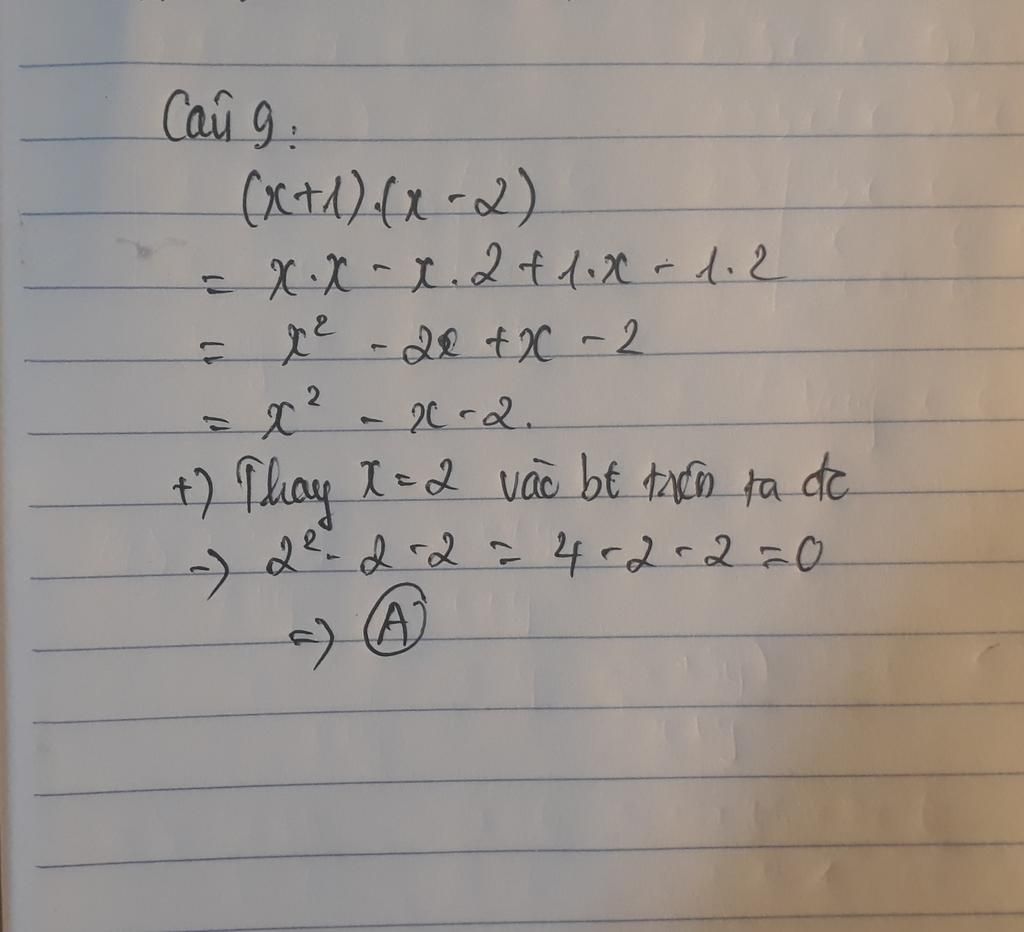 Câu 9:
(x+1).(x-2)
= x.x - x.2 + 1.x - 1.2
= x² - 2x + x - 2
= x² - x - 2.
+) Thay x=2 vào bt trên ta đc
-> 2² - 2 - 2 = 4 - 2 - 2 = 0
=> A